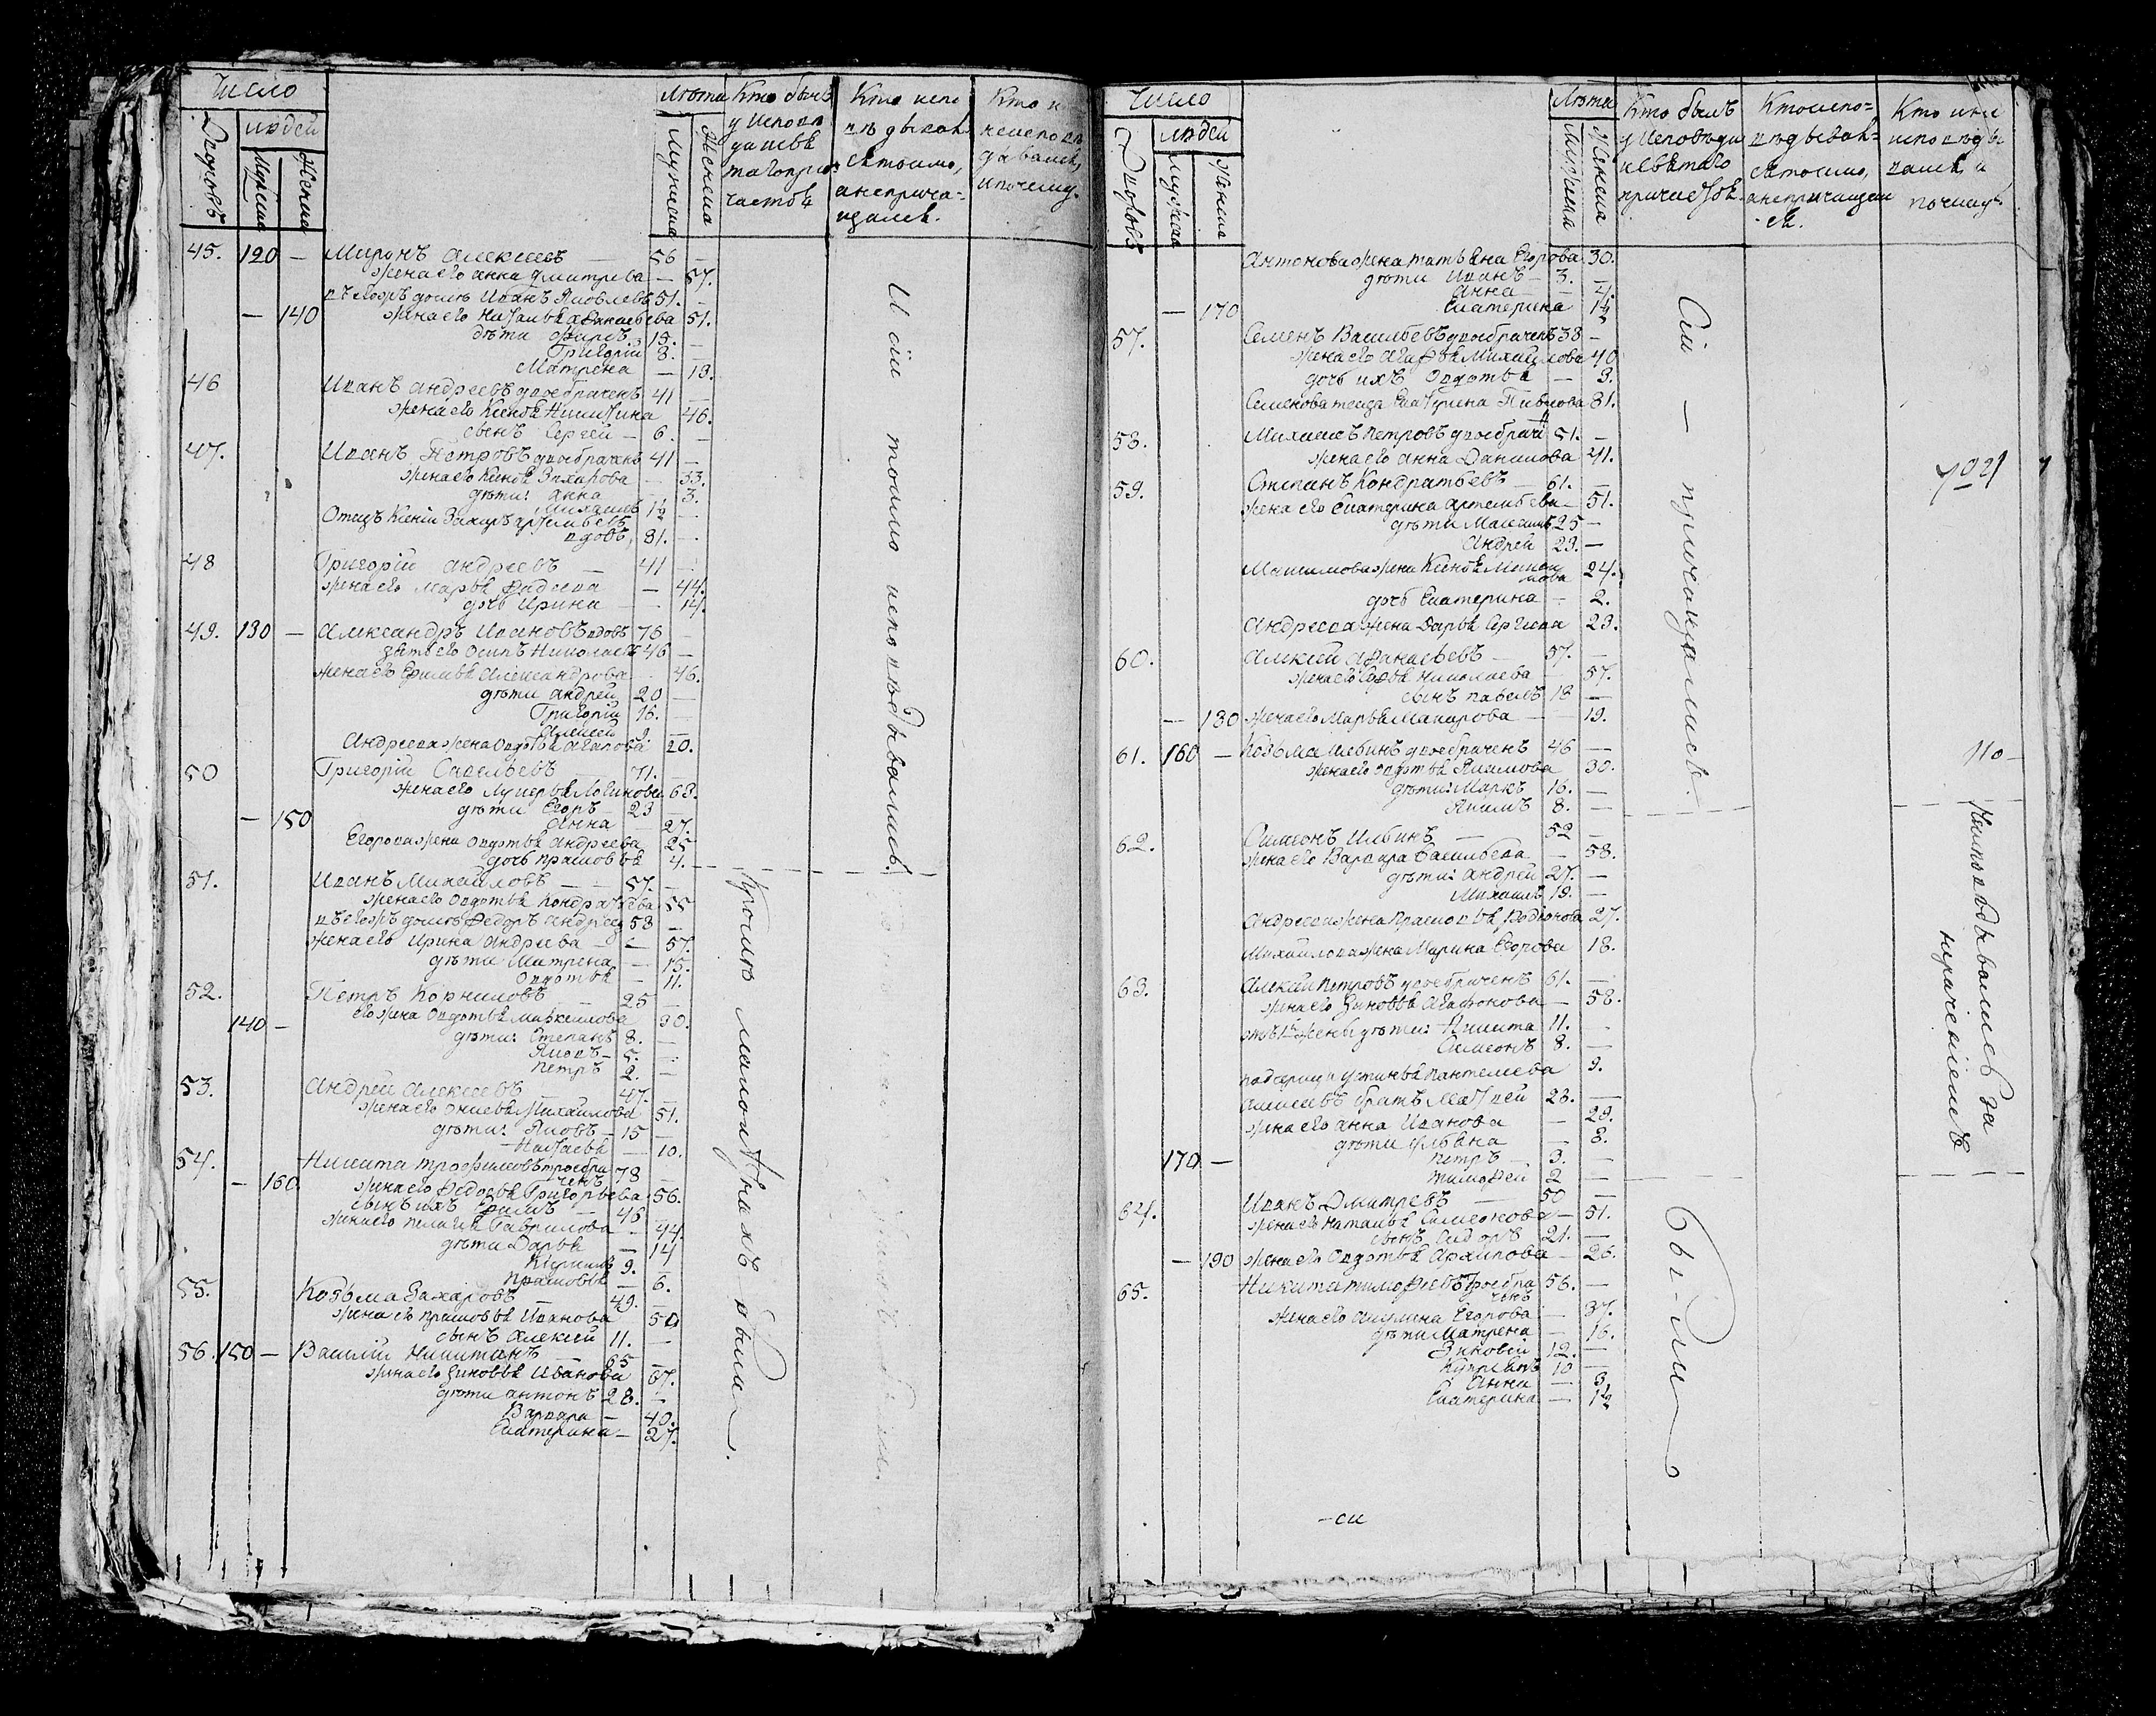 Число
Дворовъ
людей
Мужеска
Женска
Лѣта
Мужеска
Женска
Кто былъ у Исповѣди и свѣ таго причастия
Кто испо вѣдывалс ятокмо, а неприча- щался.
Кто н неисповѣ дывался, и почему.
45. 120 — Миронъ Алексѣевъ — 56 —
жена его Анна Дмитрева — 57.
въ егожъ домѣ Иванъ Яковлевъ 51. —
— 140 жена его Наталья Афанасьева 51.
дѣти Фирсъ 15. —
Григорій 8. —
Матрена — 13.
46 Иванъ Андреевъ двоебраченъ 41 —
жена его Ксенья Никитина 46.
сынъ Сергей — 6. —
47. Иванъ Петровъ двоебраченъ 41 —
жена его Ксенья Захарова — 33.
дѣти: Анна 3.
Михаилъ 1½ —
Отецъ Ксеніи Захаръ Артемьевъ
вдовъ, 81. —
48 Григорій Андреевъ — 41 —
жена его Марья Фадеева — 44.
дочь Ирина — 14.
49. 130 — Александръ Ивановъ вдовъ 76 —
зять его Осипъ Николаевъ 46 —
жена его Ефимья Александрова 46.
дѣти Андрей 20 —
Григорій 16. —
Алексей 9. —
Андреева жена Авдотья Агапова 20.
50 Григорій Савельевъ 71. —
жена его Лукерья Логинова 63.
дѣти Егоръ — 23
— 150 Анна 27.
Егорова жена Авдотья Андреева 25
дочь Прасковья 4. —
51. Иванъ Михайловъ — 57. —
жена его Авдотья Кондратьева 55
въ егожъ домѣ Федоръ Андреев 53 —
жена его Ирина Андреева — 57.
дѣти Матрена — 15.
Авдотья — 11.
52. Петръ Корниловъ — 25 —
140 — его жена Авдотья Маркелова 30.
дѣти: Степанъ 8. —
Яковъ — 5. —
Петръ 2. —
53. Андрей Алексѣевъ 47. —
жена его Михайлова 51.
дѣти: Яковъ — 15 —
Наталья — 10.
54. Никита Трофимовъ троебра
ченъ 78 —
— 160. жена его Федосья Григорьева 56.
сынъ ихъ Ефимъ — 46 —
жена его Пелагея Гаврилова — 44.
дѣти Дарья — 14
9. —
Прасковья — 6.
55. Козьма Захаровъ — 49. —
жена его Прасковья Иванова 50
сынъ Алексей 11. —
56. 150 — Василій Никитинъ — 65 —
жена его Зиновья Иванова 67.
дѣти Антонъ 28. —
Варвара — 40.
Екатерина — 27.
И сіи токмо исповѣдывались.
Кромѣ малолѣтныхъ были.
Число
Дворовъ
людей
Мужеска
Женска
Лѣта
Мужеска
Женска
Кто былъ у Исповѣди и свѣтаго причастія.
Кто испо- вѣдывал- ся токмо, а непричащал -ся.
Кто не исповѣды вался и почему.
Антонова жена Татьяна Егорова 30.
дѣти Иванъ — 3. —
Анна — 4.
— 170 Екатерина 1½
57. Семенъ Васильевъ двоебраченъ 38 —
жена его Агафья Михайлова 40
дочь ихъ Авдотья — 3.
Семенова теща Екатерина Павлова 81.
58. Михаилъ Петровъ двоебрач 51. —
жена его Анна Данилова 41.
59. Степанъ Кондратьевъ — 61. —
жена его Екатерина Артемьева — 51.
дѣти Максимъ 25 —
Андрей 23. —
Максимова жена Ксенья Макси
мова 24.
дочь Екатерина — 2.
Андреева жена Дарья Сергеева 23.
60. Алексей Афанасьевъ — 57. —
жена его Софья Николаева — 57.
сынъ Павелъ 18 —
— 180 жена его Марья Макарова — 19.
61. 160 — Козьма двоебраченъ 46 —
жена его Авдотья Якимова 30.
дѣти: Маркъ 16. —
Якимъ 8. —
62. Симеонъ Ильинъ — 52 —
жена его Варвара Васильева — 58.
дѣти: Андрей 27. —
Михаилъ 19. —
Андреева жена Прасковья Родионова 27.
Михайлова жена Марина Егорова 18.
63. Алексей Петровъ двоебраченъ 61. —
жена его Зиновья Агафонова — 58.
отъ 1й жены дѣти: Никита 11. —
Симеонъ 8. —
падчерица Устинья Пантелеева 9.
Алексеевъ братъ Матвей 28. —
жена его Анна Иванова — 29.
дѣти Ульяна — 8.
170 — Петръ — 3. —
Тимофей 2 —
64. Иванъ Дмитревъ — 50 —
жена его Наталья Симеонова — 51.
сынъ Сидоръ 21. —
— 190 жена его Авдотья Архипова — 26.
65. Никита Тимофеевъ троебра
ченъ 56. —
жена его Акулина Егорова — 37.
дѣти Матрена — 16.
Зиновій 12. —
Купріянъ 10 —
Анна — 3.
Екатерина — 1½
Сіи — причащались.
Бы-ли
110 —
Неисповѣдывались за нерачѣніемъ
-си